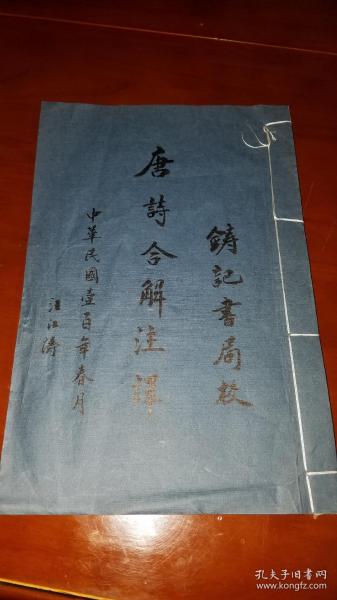 鑄記書局校
唐詩合解注譯
中華民國壹百年春月
汪江濤
孔夫子旧书网
www.kongfz.com